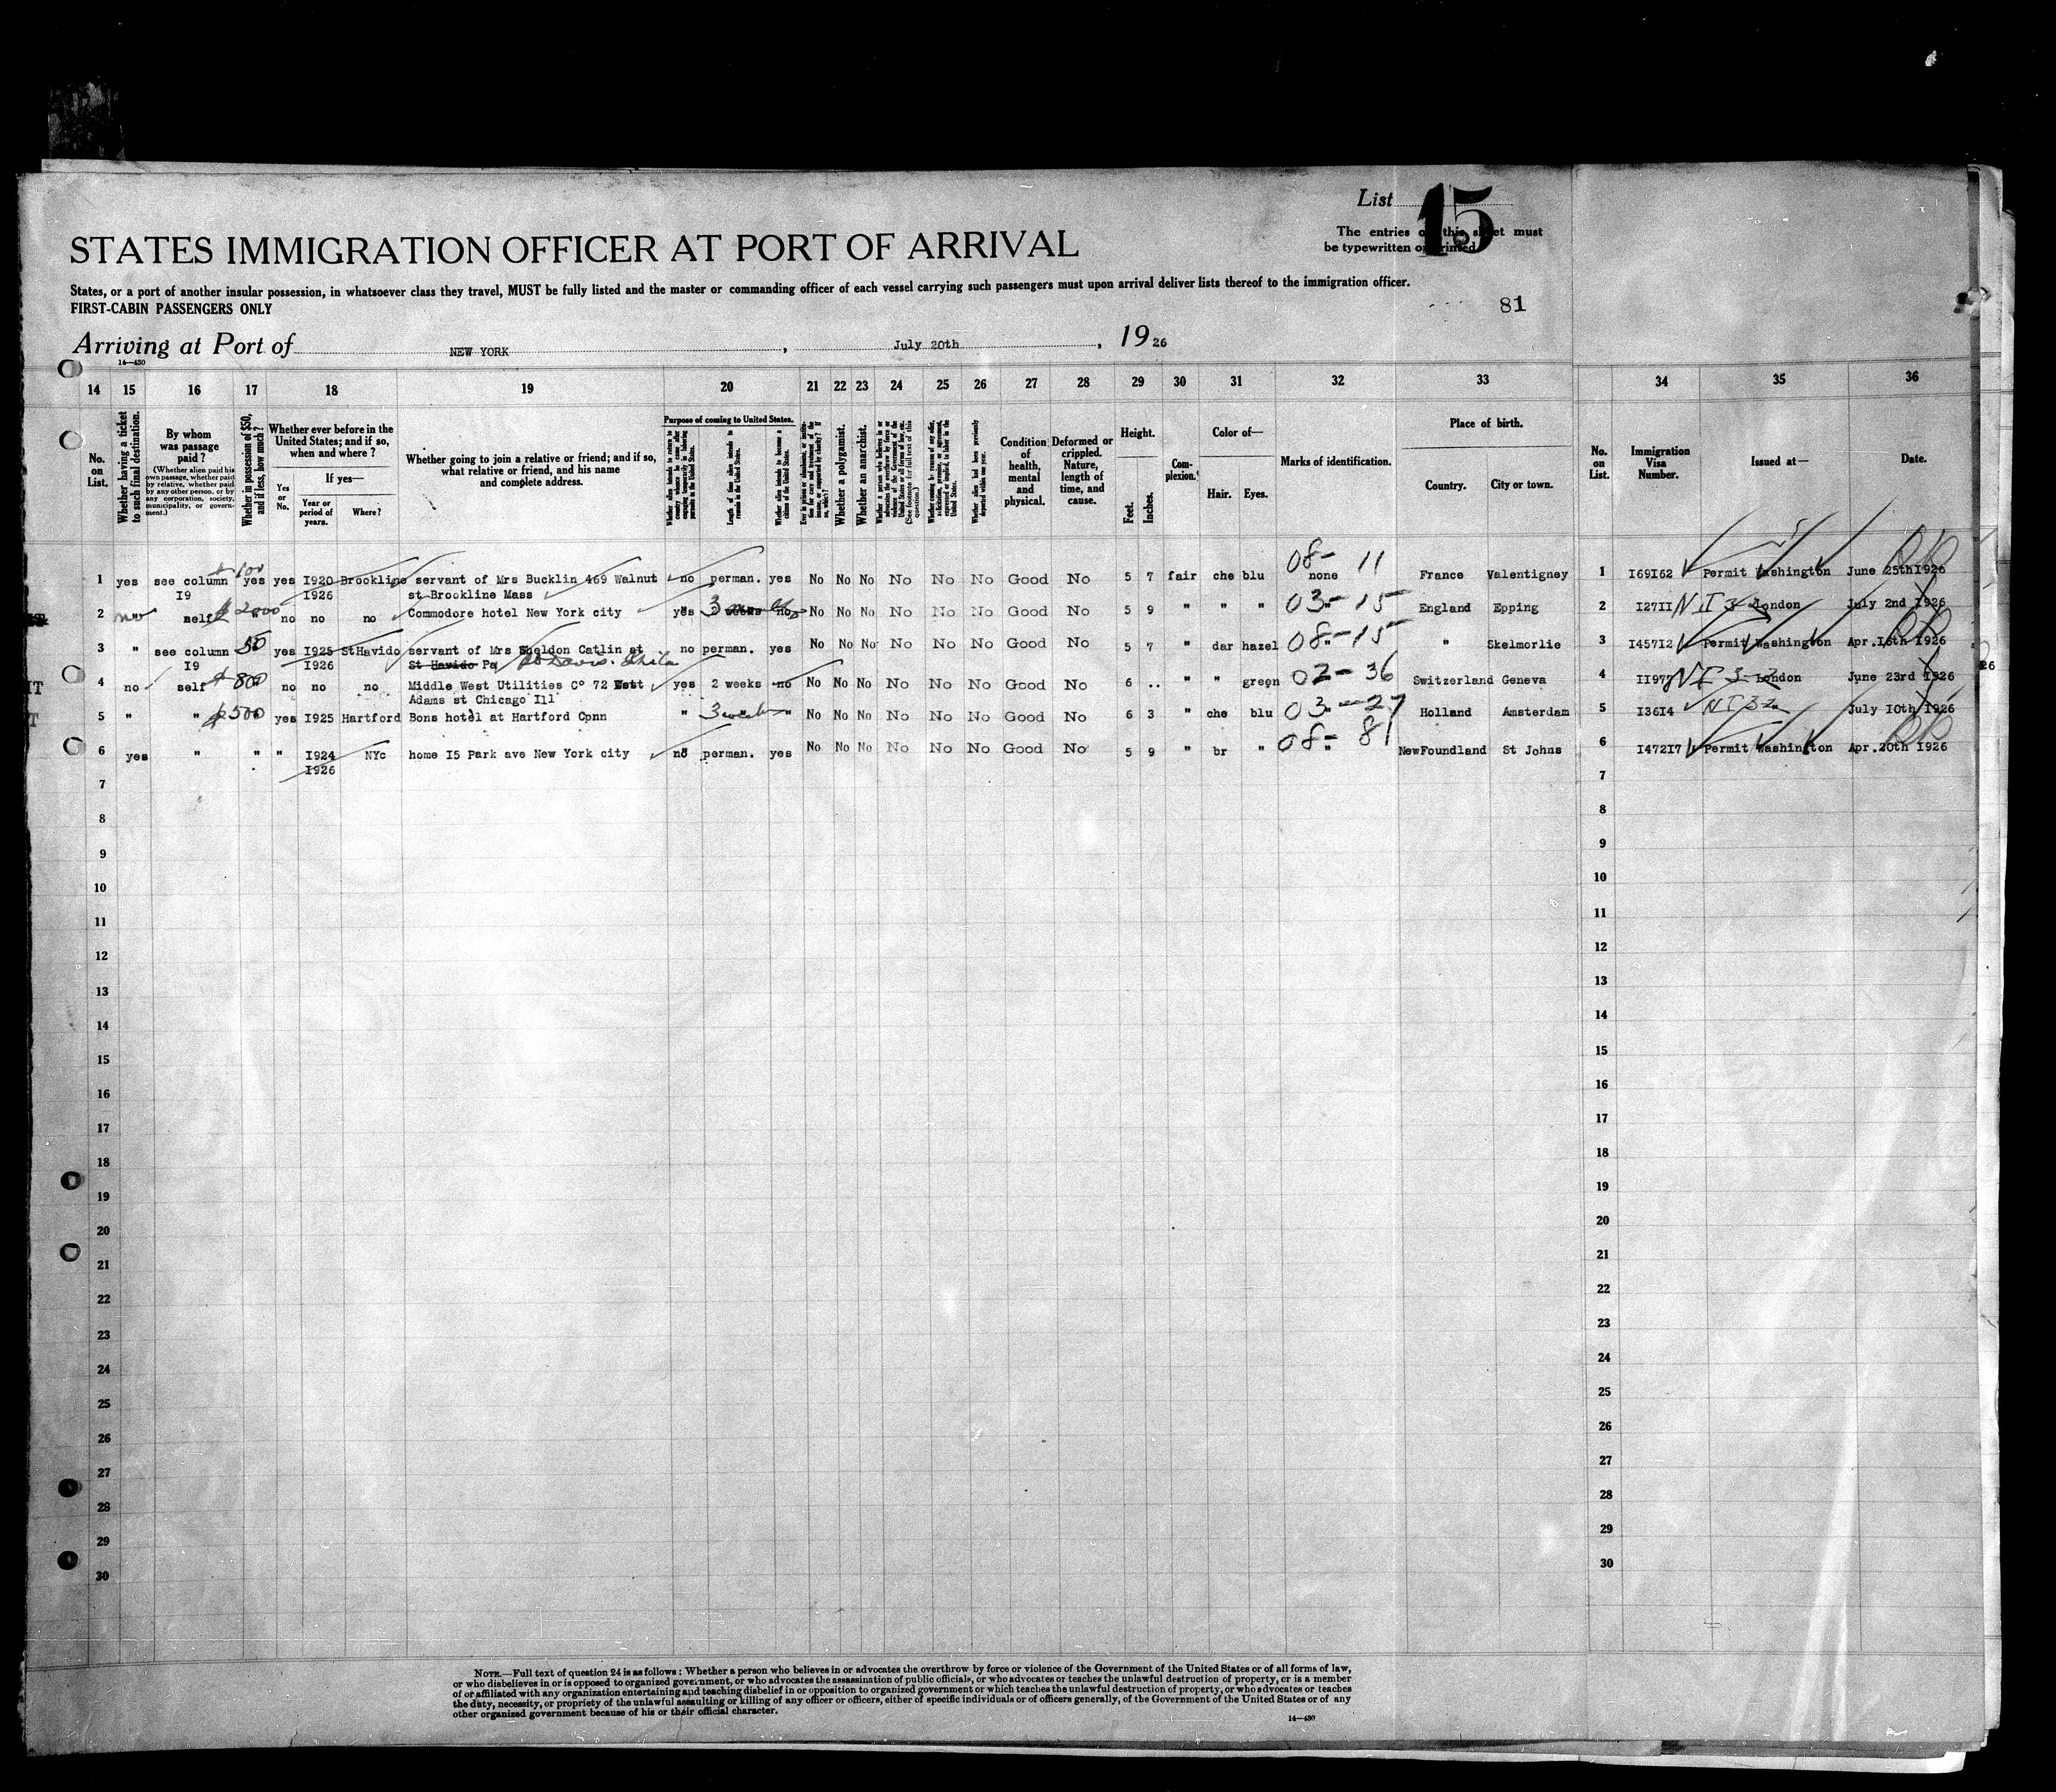 List 15
The entries on this sheet must
be typewritten or printed.
STATES IMMIGRATION OFFICER AT PORT OF ARRIVAL
States, or a port of another insular possession, in whatsoever class they travel, MUST be fully listed and the master or commanding officer of each vessel carrying such passengers must upon arrival deliver lists thereof to the immigration officer.
FIRST-CABIN PASSENGERS ONLY
81
Arriving at Port of NEW YORK, July 20th, 1926
14—430
14 15 16 17 18 19 20 21 22 23 24 25 26 27 28 29 30 31 32 33 34 35 36
No. on List.
Whether having a ticket to such final destination.
By whom was passage paid?
(Whether alien paid his own passage, whether paid by relative, whether paid by any other person, or by any corporation, society, municipality, or government.)
Whether in possession of $50, and if less, how much?
Whether ever before in the United States; and if so, when and where?
If yes—
Yes or No.
Year or period of years.
Where?
Whether going to join a relative or friend; and if so, what relative or friend, and his name and complete address.
Purpose of coming to United States.
Length of time alien intends to remain in the United States.
Whether alien intends to become a citizen of the United States.
Whether a polygamist.
Whether an anarchist.
(See footnote for full text of this question.)
Condition of health, mental and physical.
Deformed or crippled. Nature, length of time, and cause.
Height.
Feet.
Inches.
Complexion.
Color of—
Hair.
Eyes.
Marks of identification.
Place of birth.
Country.
City or town.
No. on List.
Immigration Visa Number.
Issued at—
Date.
08- 11
1 yes see column yes yes I920 Brookline servant of Mrs Bucklin 469 Walnut no perman. yes No No No No No No Good No 5 7 fair che blu none France Valentigney 1 I69I62 Permit Washington June 25th I926
I9 I926 st Brookline Mass
2 self $2000 no no no Commodore hotel New York city yes 3 no No No No No No No Good No 5 9 " " " 03-15 England Epping 2 I27II NI 3-2 London July 2nd I926
3 " see column 50 yes I925 StHavido servant of Mrs Sheldon Catlin at no perman. yes No No No No No No Good No 5 7 " dar hazel 08-15 " Skelmorlie 3 I457I2 Permit Washington Apr.I6th I926
I9 I926 St Havido Pa St Davis. Phila
4 no self $800 no no no Middle West Utilities C° 72 West yes 2 weeks no No No No No No No Good No 6 .. " " green 02-36 Switzerland Geneva 4 NI 3-2 London June 23rd I926
Adams st Chicago Ill
5 " " $500 yes I925 Hartford Bons hotel at Hartford Conn " 3 weeks " No No No No No No Good No 6 3 " che blu 03-27 Holland Amsterdam 5 I36I4 NI 3-2 July I0th I926
6 yes " " " I924 NYc home I5 Park ave New York city no perman. yes No No No No No No Good No 5 9 " br " 08- 81 NewFoundland St Johns 6 I472I7 Permit Washington Apr.20th I926
I926
7 7
8 8
9 9
10 10
11 11
12 12
13 13
14 14
15 15
16 16
17 17
18 18
19 19
20 20
21 21
22 22
23 23
24 24
25 25
26 26
27 27
28 28
29 29
30 30
NOTE.—Full text of question 24 is as follows: Whether a person who believes in or advocates the overthrow by force or violence of the Government of the United States or of all forms of law,
or who disbelieves in or is opposed to organized government, or who advocates the assassination of public officials, or who advocates or teaches the unlawful destruction of property, or is a member
of or affiliated with any organization entertaining and teaching disbelief in or opposition to organized government or which teaches the unlawful destruction of property, or who advocates or teaches
the duty, necessity, or propriety of the unlawful assaulting or killing of any officer or officers, either of specific individuals or of officers generally, of the Government of the United States or of any
other organized government because of his or their official character.
14—430